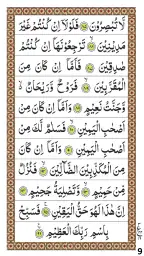 لَّا تُبْصِرُونَ ﴿٨٥﴾ فَلَوْلَا إِن كُنتُمْ غَيْرَ
مَدِينِينَ ﴿٨٦﴾ تَرْجِعُونَهَا إِن كُنتُمْ
صَٰدِقِينَ ﴿٨٧﴾ فَأَمَّا إِن كَانَ مِنَ
الْمُقَرَّبِينَ ﴿٨٨﴾ فَرَوْحٌ وَرَيْحَانٌ
وَجَنَّتُ نَعِيمٍ ﴿٨٩﴾ وَأَمَّا إِن كَانَ مِنْ
أَصْحَٰبِ الْيَمِينِ ﴿٩٠﴾ فَسَلَٰمٌ لَّكَ مِنْ
أَصْحَٰبِ الْيَمِينِ ﴿٩١﴾ وَأَمَّا إِن كَانَ
مِنَ الْمُكَذِّبِينَ الضَّالِّينَ ﴿٩٢﴾ فَنُزُلٌ
مِّنْ حَمِيمٍ ﴿٩٣﴾ وَتَصْلِيَةُ جَحِيمٍ ﴿٩٤﴾
إِنَّ هَٰذَا لَهُوَ حَقُّ الْيَقِينِ ﴿٩٥﴾ فَسَبِّحْ
بِاسْمِ رَبِّكَ الْعَظِيمِ ﴿٩٦﴾
9